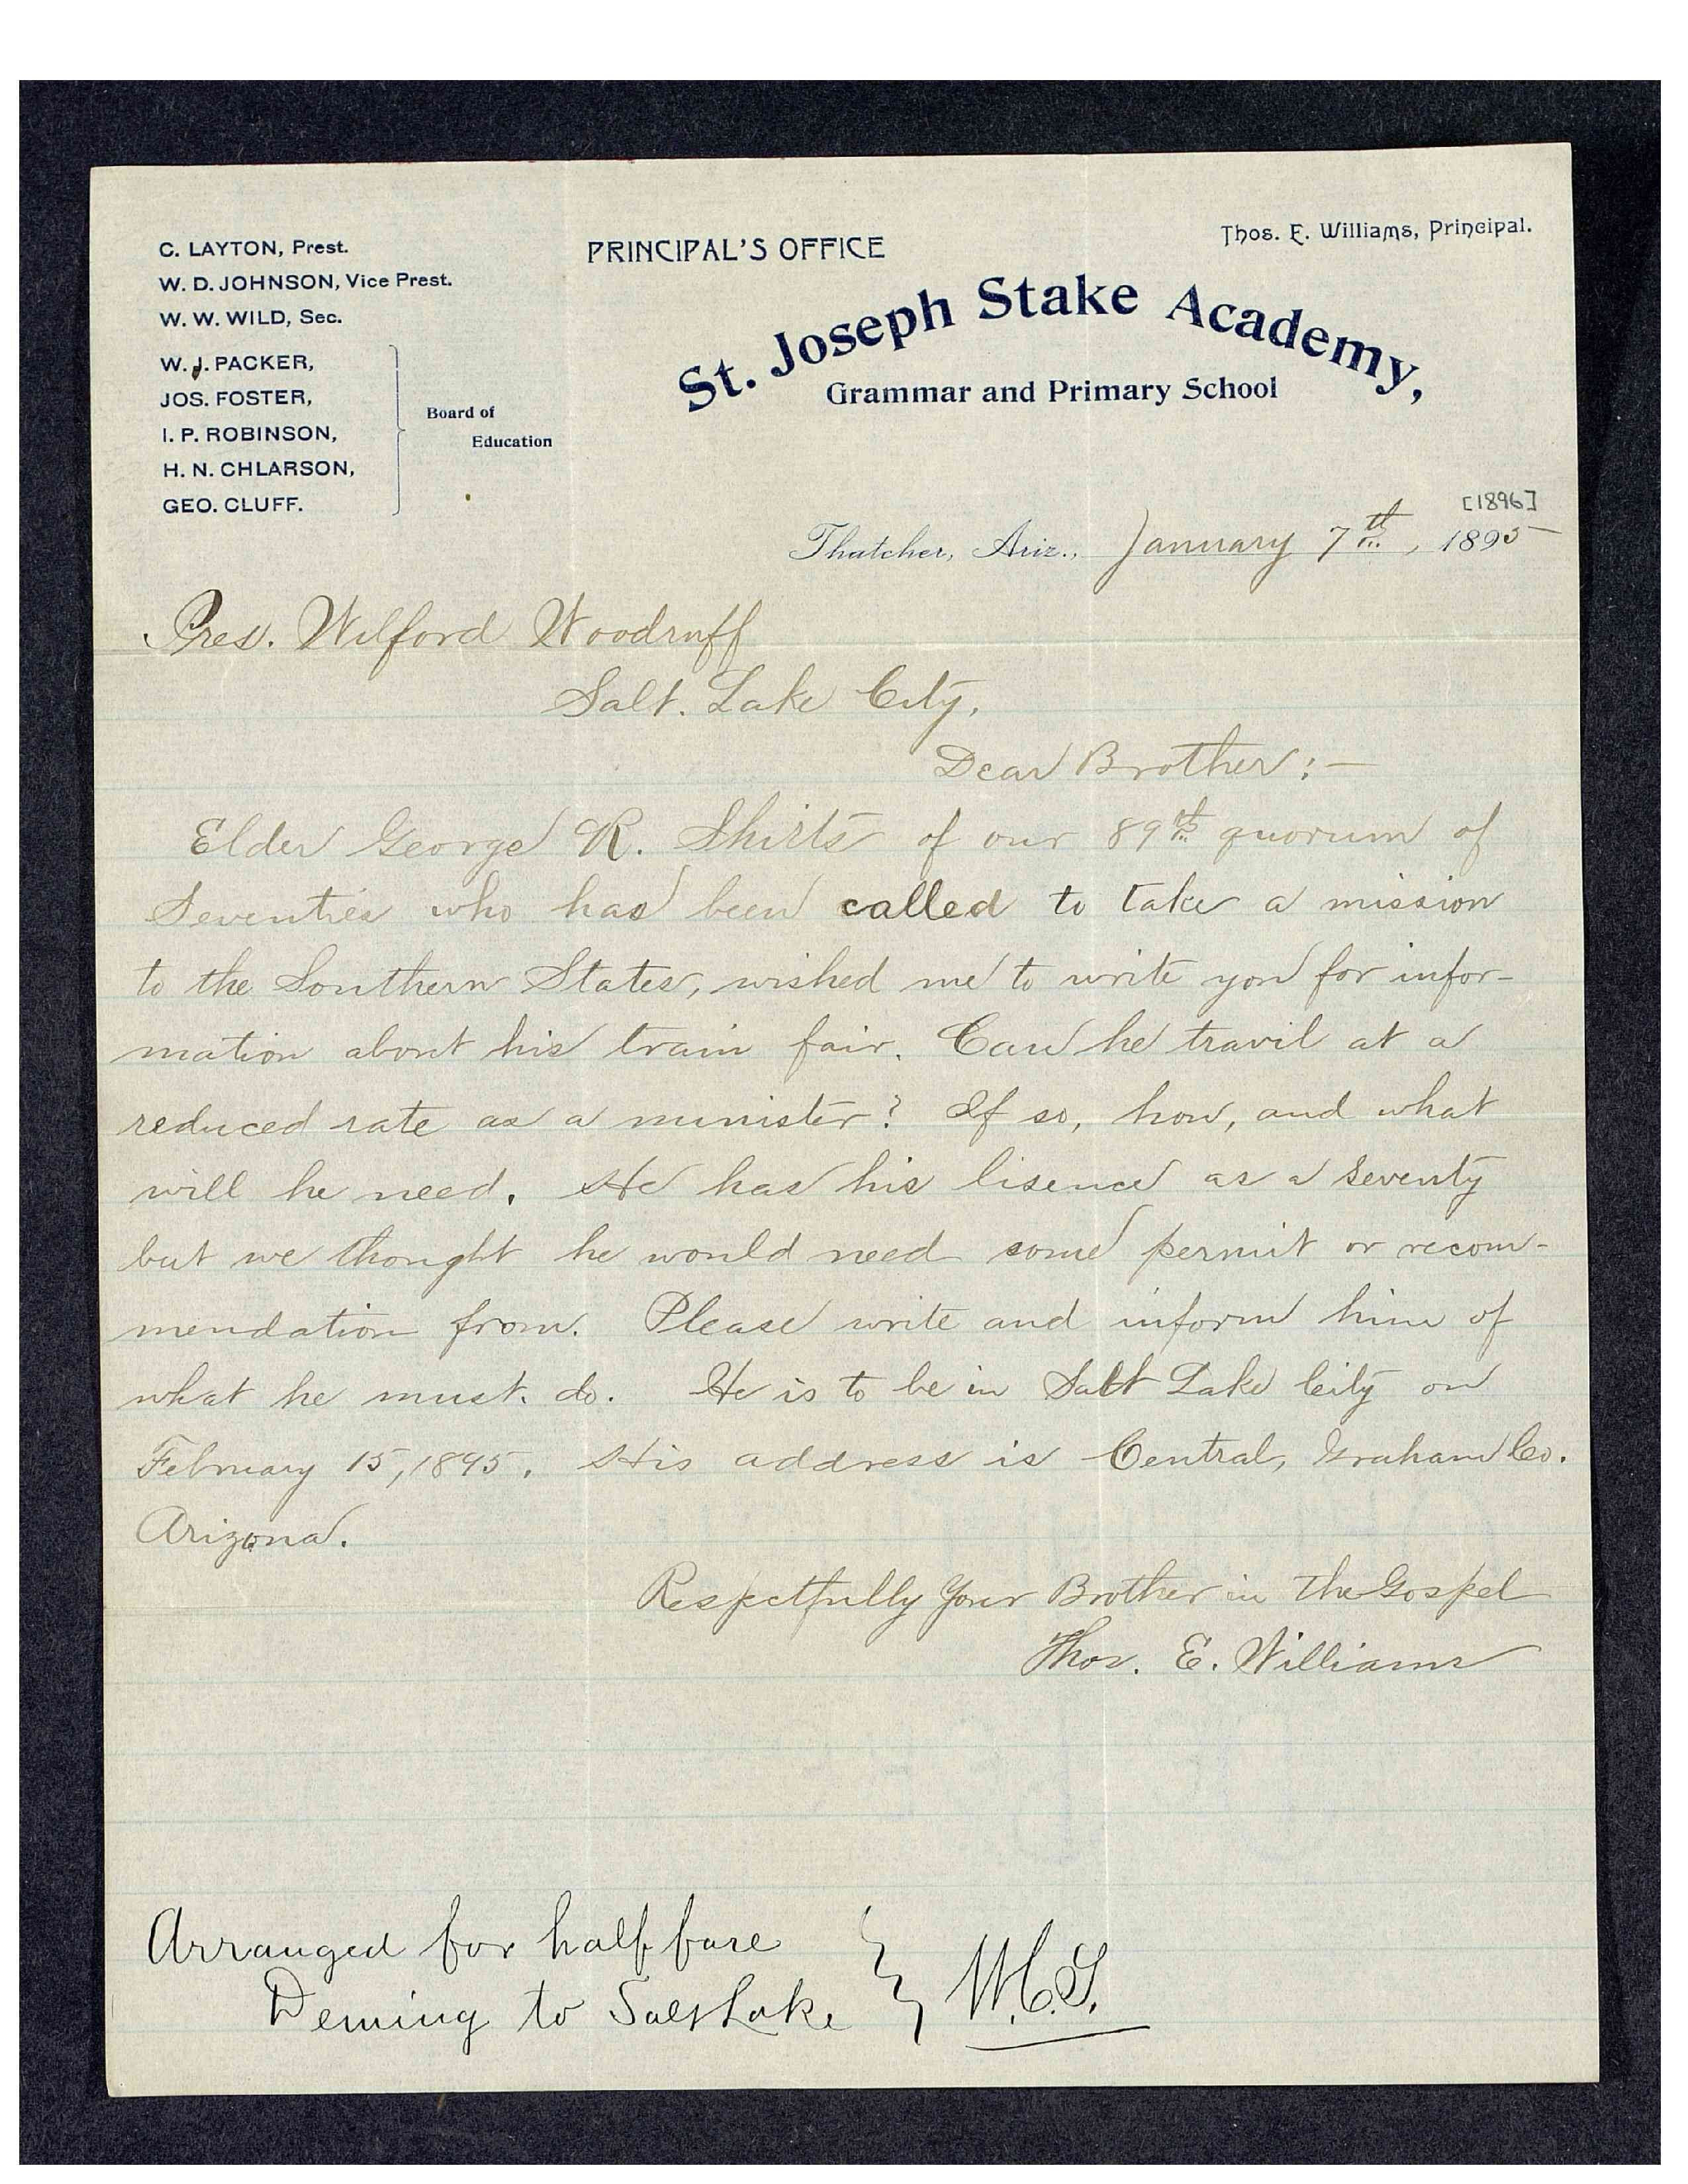 C. LAYTON, Prest.
W. D. JOHNSON, Vice Prest.
W. W. WILD, Sec.
W. J. PACKER,
JOS. FOSTER,
I. P. ROBINSON,
H. N. CHLARSON,
GEO. CLUFF.
Board of
Education
PRINCIPAL'S OFFICE
Thos. E. Williams, Principal.
St. Joseph Stake Academy,
Grammar and Primary School
[1896]
Thatcher, Ariz., January 7th, 1895
Pres. Wilford Woodruff
Salt. Lake City,
Dear Brother:—
Elder George R. Shirts of our 89th quorum of
Seventies who has been called to take a mission
to the Southern States, wished me to write you for infor-
mation about his train fair. Can he travil at a
reduced rate as a minister? If so, how, and what
will he need. He has his lisence as a Seventy
but we thought he would need some permit or recom-
mendation from. Please write and inform him of
what he must. do. He is to be in Salt Lake City on
February 15, 1895. His address is Central, Graham Co.
Arizona.
Respectfully Your Brother in the Gospel
Thos. E. Williams
Arranged for half fare
Deming to Salt Lake } W.C.S.